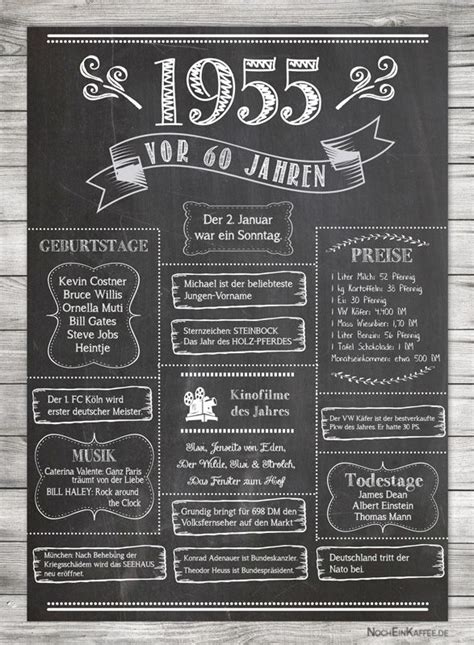 1955
VOR 60 JAHREN
Der 2. Januar
war ein Sonntag.
GEBURTSTAGE
Kevin Costner
Bruce Willis
Ornella Muti
Bill Gates
Steve Jobs
Heintje
Michael ist der beliebteste
Jungen-Vorname
Sternzeichen: STEINBOCK
Das Jahr des HOLZ-PFERDES
PREISE
1 Liter Milch: 52 Pfennig
1 kg Kartoffeln: 38 Pfennig
1 Ei: 30 Pfennig
1 VW Käfer: 4.400 DM
1 Mass Wiesnbier: 1,70 DM
1 Liter Benzin: 56 Pfennig
1 Tafel Schokolade: 1 DM
Monatseinkommen: etwa 500 DM
Der 1. FC Köln wird
erster deutscher Meister.
Kinofilme
des Jahres
Sissi, Jenseits von Eden,
Der Wilde, Susi & Strolch,
Das Fenster zum Hof
Der VW Käfer ist der bestverkaufte
Pkw des Jahres. Er hatte 30 PS.
MUSIK
Caterina Valente: Ganz Paris
träumt von der Liebe
BILL HALEY: Rock around
the Clock
Todestage
James Dean
Albert Einstein
Thomas Mann
Grundig bringt für 698 DM den
Volksfernseher auf den Markt
München: Nach Behebung der
Kriegsschäden wird das SEEHAUS
neu eröffnet.
Konrad Adenauer ist Bundeskanzler.
Theodor Heuss ist Bundespräsident.
Deutschland tritt der
Nato bei.
NOCHEINKAFFEE.DE